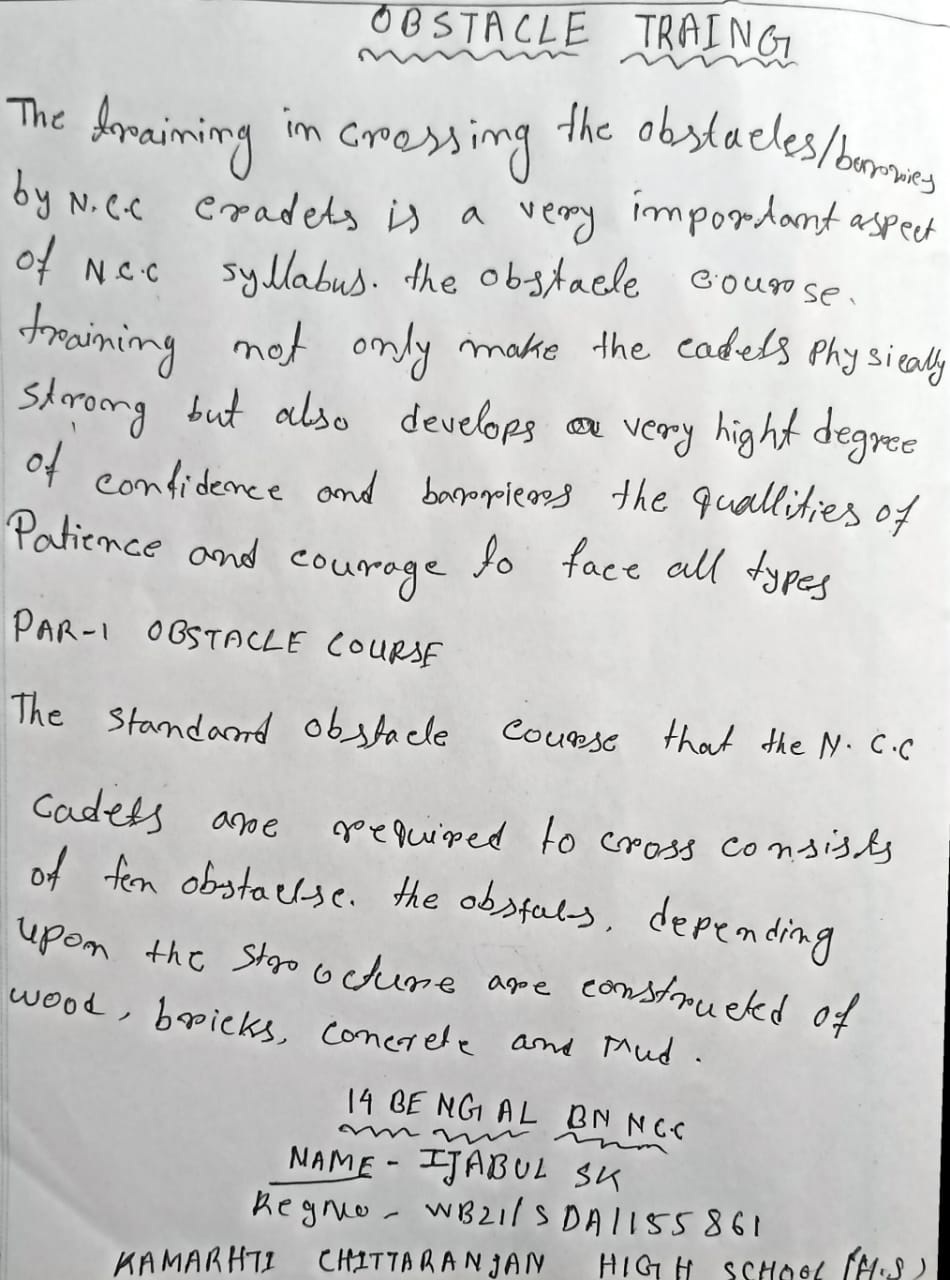 OBSTACLE TRAING
The training in crossing the obstacles/barrories
by N.C.C cradets is a very important aspect
of N.C.C syllabus. the obstacle course.
training not only make the cadets Physically
strrong but also develops a very hight degree
of confidence and barrriers the quallities of
Patience and courage to face all types
PAR-1 OBSTACLE COURSE
The standard obstacle course that the N.C.C
Cadets are required to cross consists
of ten obstaclse. the obstals, depending
upon the structure are constructed of
wood, bricks, concrete and Mud.
14 BENGAL BN NCC
NAME - IJABUL SK
Regno - WB21/SDA1155861
KAMARHTI CHITTARANJAN HIGH SCHOOL (H.S)